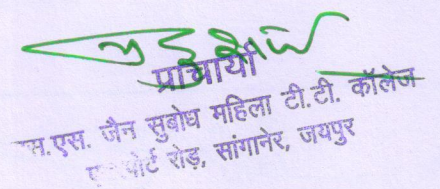 प्राचार्या
एस.एस. जैन सुबोध महिला टी.टी. कॉलेज
रोड़, सांगानेर, जयपुर